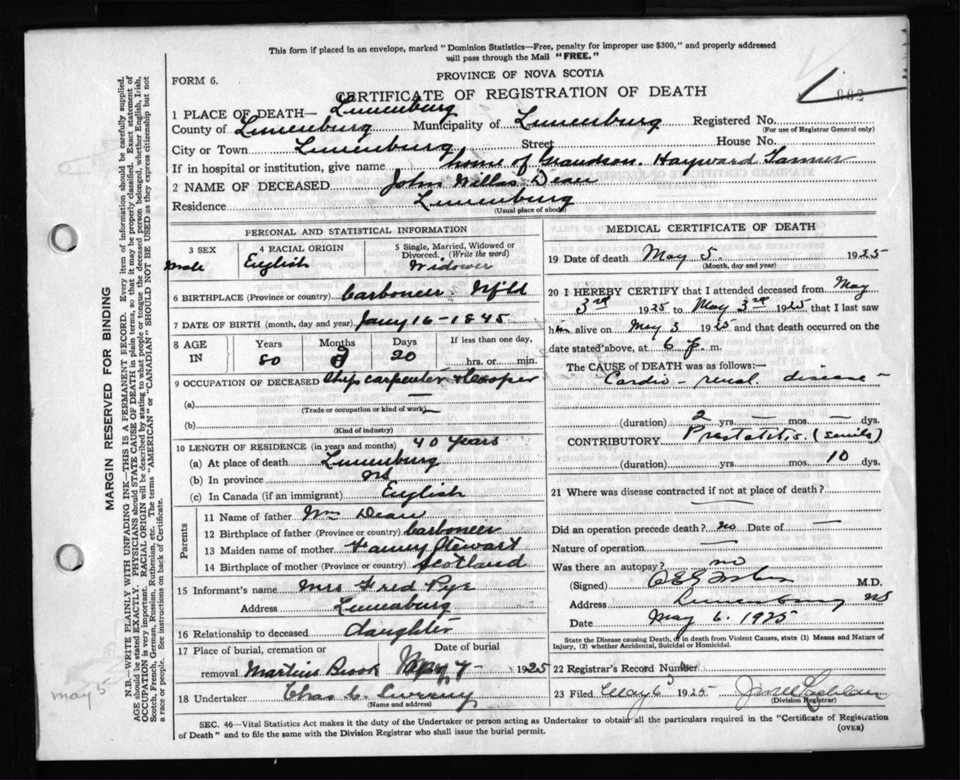 This form if placed in an envelope, marked "Dominion Statistics—Free, penalty for improper use $300," and properly addressed
will pass through the Mail "FREE."
FORM 6.
PROVINCE OF NOVA SCOTIA
CERTIFICATE OF REGISTRATION OF DEATH
1 PLACE OF DEATH— Lunenburg
County of Lunenburg Municipality of Lunenburg Registered No.
(For use of Registrar General only)
City or Town Lunenburg Street House No.
If in hospital or institution, give name home of Grandson. Hayward Tanner
2 NAME OF DECEASED John Wallas Dean
Residence Lunenburg
(Usual place of abode)
PERSONAL AND STATISTICAL INFORMATION
3 SEX 4 RACIAL ORIGIN 5 Single, Married, Widowed or
Divorced. (Write the word)
Male English Widower
6 BIRTHPLACE (Province or country) Carboneer Nfld
7 DATE OF BIRTH (month, day and year) Jany 16-1845
8 AGE IN Years Months Days If less than one day,
80 20 hrs. or min.
9 OCCUPATION OF DECEASED Ship carpenter & Cooper
(a)
(Trade or occupation or kind of work)
(b)
(Kind of industry)
10 LENGTH OF RESIDENCE (in years and months) 40 years
(a) At place of death Lunenburg
(b) In province
(c) In Canada (if an immigrant) English
Parents
11 Name of father Wm Dean
12 Birthplace of father (Province or country) Carboneer
13 Maiden name of mother Fanny Stewart
14 Birthplace of mother (Province or country) Scotland
15 Informant's name Mrs Fred Pye
Address Lunenburg
16 Relationship to deceased daughter
17 Place of burial, cremation or Date of burial
removal Martins Brook May 7- 1925
18 Undertaker Chas
(Name and address)
MEDICAL CERTIFICATE OF DEATH
19 Date of death May 5 1925
(Month, day and year)
20 I HEREBY CERTIFY that I attended deceased from May
3rd 1925 to May 3rd 1925 that I last saw
him alive on May 3 1925 and that death occurred on
date stated above, at 6 p. m.
The CAUSE of DEATH was as follows:—
Cardio - renal disease -
(duration) 2 yrs. — mos. — dys.
CONTRIBUTORY Prostatitis (senile)
(duration) yrs. mos. 10 dys.
21 Where was disease contracted if not at place of death?
Did an operation precede death? no Date of —
Nature of operation —
Was there an autopsy? no
(Signed) M.D.
Address Lunenburg NS
Date May 6. 1925
State the Disease causing Death, or in death from Violent Causes, state (1) Means and Nature of
Injury, (2) whether Accidental, Suicidal or Homicidal.
22 Registrar's Record Number
23 Filed May 6 1925
(Division Registrar)
SEC. 46—Vital Statistics Act makes it the duty of the Undertaker or person acting as Undertaker to obtain all the particulars required in the "Certificate of Registration
of Death" and to file the same with the Division Registrar who shall issue the burial permit. (OVER)
MARGIN RESERVED FOR BINDING
N.B.—WRITE PLAINLY WITH UNFADING INK—THIS IS A PERMANENT RECORD. Every item of information should be carefully supplied.
AGE should be stated EXACTLY. PHYSICIANS should STATE CAUSE OF DEATH in plain terms, so that it may be properly classified. Exact statement of
OCCUPATION is very important. RACIAL ORIGIN will be described by stating to what people or tongue the deceased person belonged, whether English, Irish,
Scotch, French, German, Russian, Ruthenian, etc. The terms "AMERICAN" or "CANADIAN" SHOULD NOT BE USED as they express citizenship but not
a race or people. See instructions on back of Certificate.
May 5